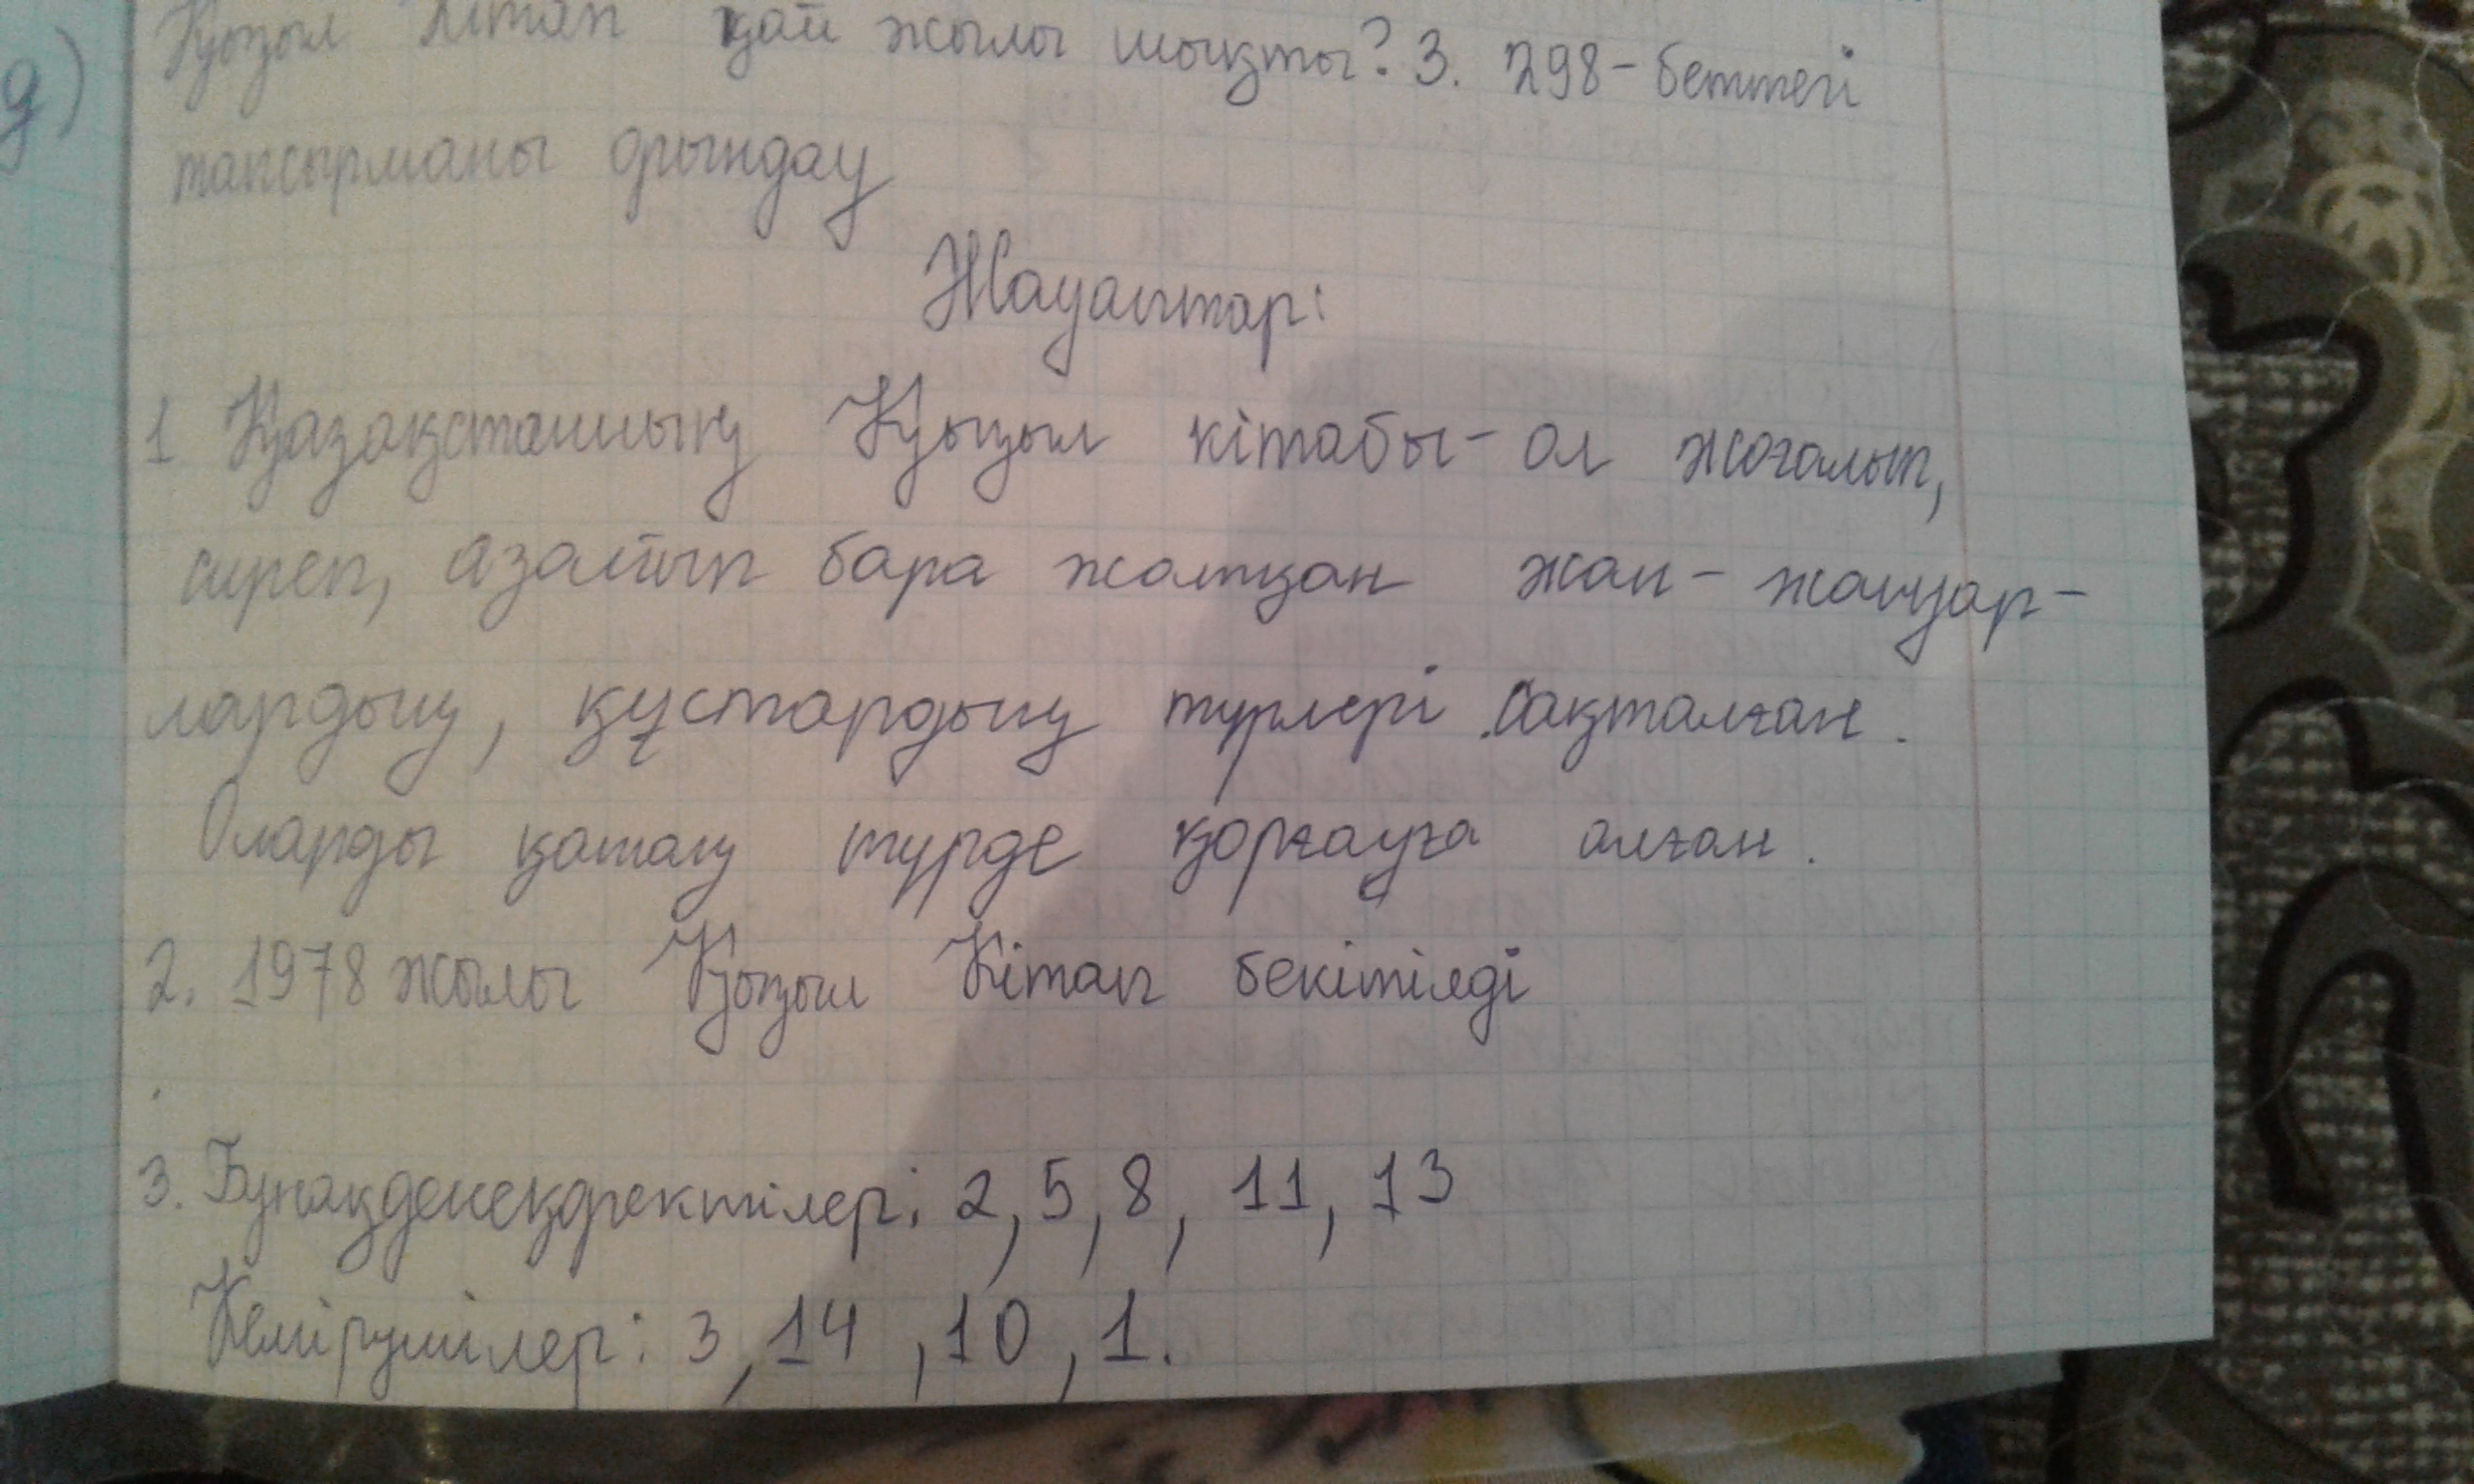 Қызыл Кітап қай жылы шықты? 3. 298-беттегі
д)
тапсырманы орындау
Жауаптар:
1 Қазақстанның Қызыл кітабы- ол жоғалып,
сиреп, азайып бара жатқан жан-жануар-
лардың, құстардың түрлері сақталған.
Оларды қатаң түрде қорғауға алған.
2. 1978 жылы Қызыл Кітап бекітілді
3. Бунақденекректілер: 2, 5, 8, 11, 13
Кемірушілер: 3, 14, 10, 1.